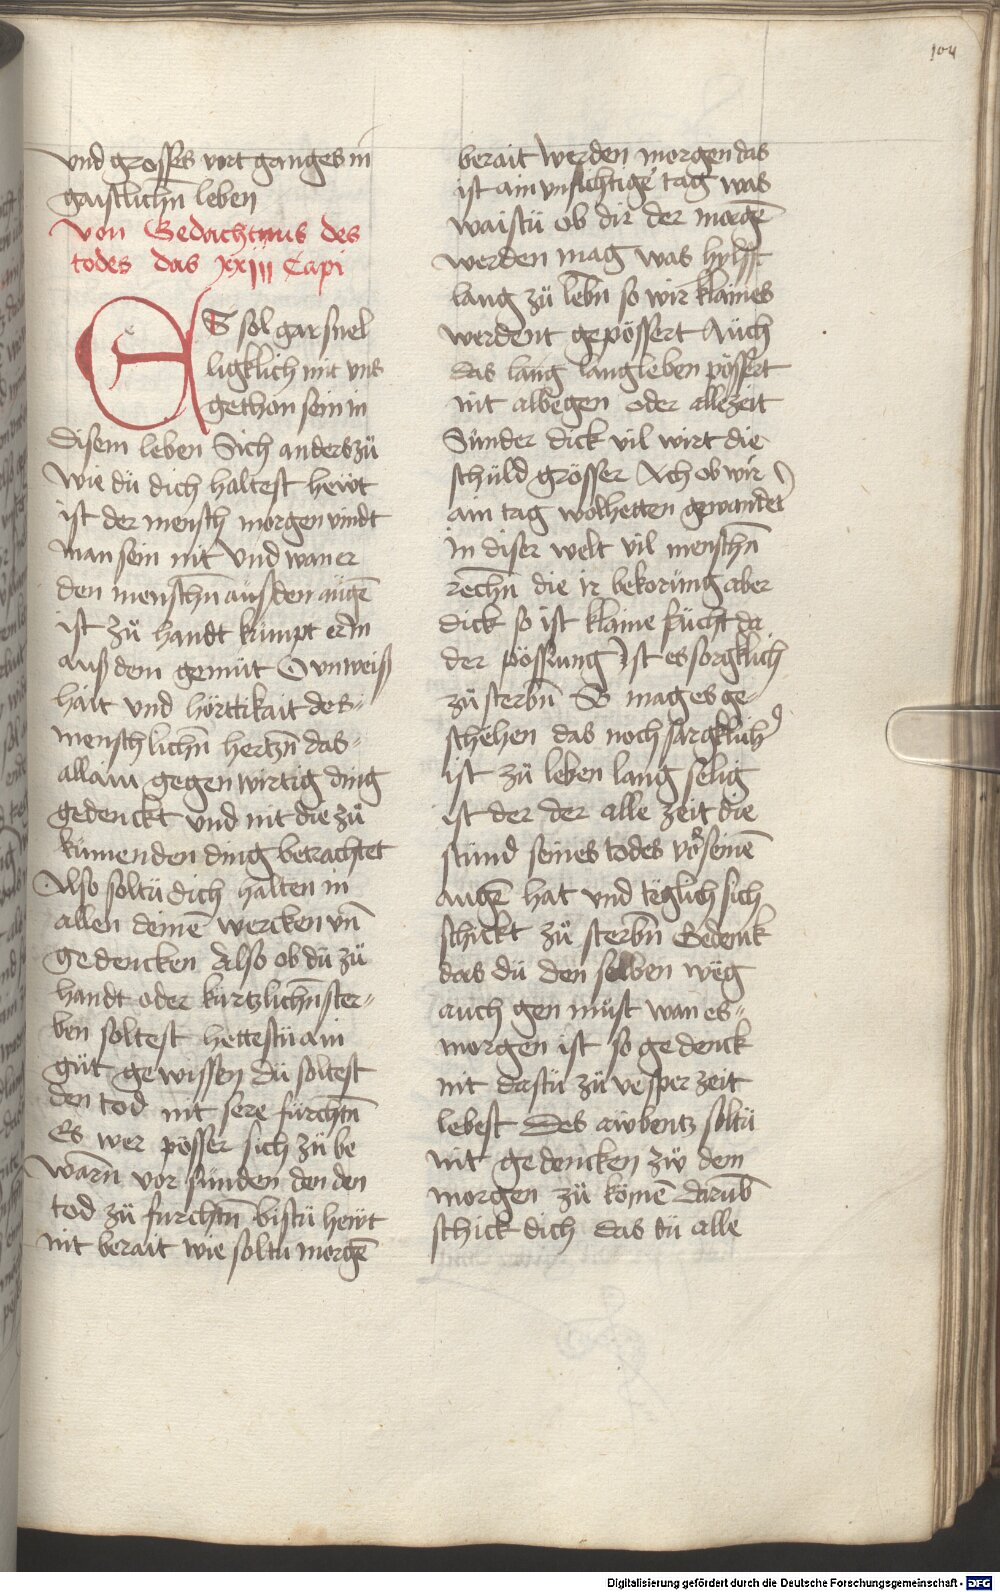 104
vnd grosses vort ganges in
gaistlichn̄ leben
Von Gedachtnus des
todes das xxiij Capi
ES sol gar snel
ligklich mit vns
gethan sein in
disem leben Sich anders zů
wie dü dich haltest hewt
ist der mensch morgen vindt
man sein nit Vnd wan er
den menschn̄ auß den augē
ist zů handt kümpt er im
auß dem gemüt O vnweiß
hait vnd hörttikait des
menschlichn̄ hertzn̄ das
allain gegenwirtig ding
gedenckt vnd nit die zů
kümenden ding betrachtet
Also soltü dich halten in
allen deinē wercken vn̄
gedencken Also ob dü zü
handt oder kürtzlichn̄ ster
ben soltest hettestü ain
güt gewissen dü soltest
den tod nit sere fürchtn̄
Es wer pösser sich zü be
warn̄ vor sünden den den
tod zü furchtn̄ bistü hewt
nit berait wie soltu morgē
berait werden morgen das
ist ain vnsichtiger tag was
waistü ob dir der morgē
werden mag was hylfft
lang zü lebn̄ so wir klaines
werdent gepössert Auch
das lang langleben pössert
nit albegen oder allezeit
Sünder dick vil wirt die
schüld grösser Ach ob wir
ain tag wol hetten gewandelt
in diser welt vil menschn̄
rechn̄ die ir bekorüng aber
dick so ist klaine frücht da
der pössrung Ist es sorgklich
zü sterbn̄ So mag es ge
schehen das noch sargklicher
ist zü leben lang selig
ist der der alle zeit die
stünd seines todes vor seinē
augē hat vnd teglich sich
schickt zů sterbn̄ Gedenk
das dü den selben weg
auch gen müst wan es
morgen ist so gedenck
nit dastü zü vesper zeit
lebest Des awbentz soltü
nit gedencken zü dem
morgen zü kömē darumb
schick dich das dü alle
Digitalisierung gefördert durch die Deutsche Forschungsgemeinschaft - DFG